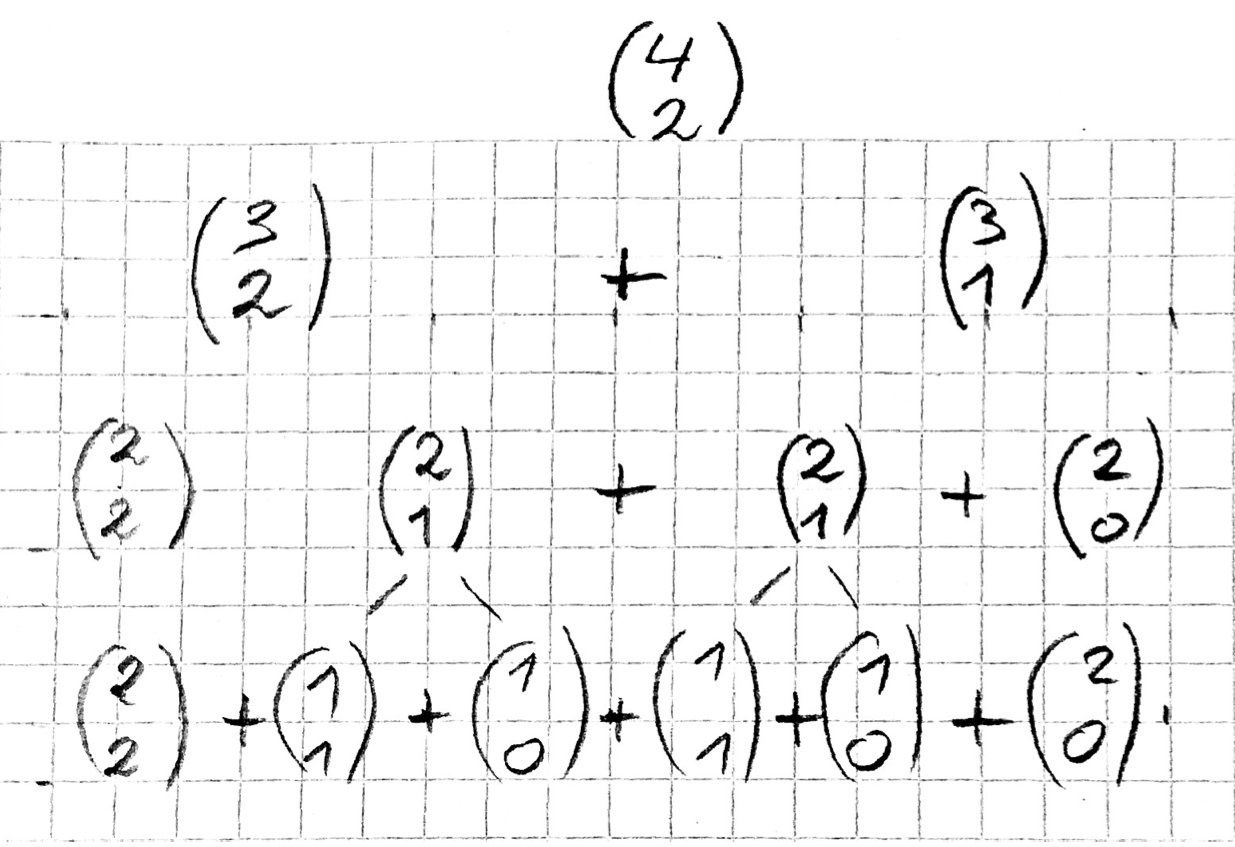 (4 2)
(3 2) + (3 1)
(2 2) (2 1) + (2 1) + (2 0)
(2 2) + (1 1) + (1 0) + (1 1) + (1 0) + (2 0)